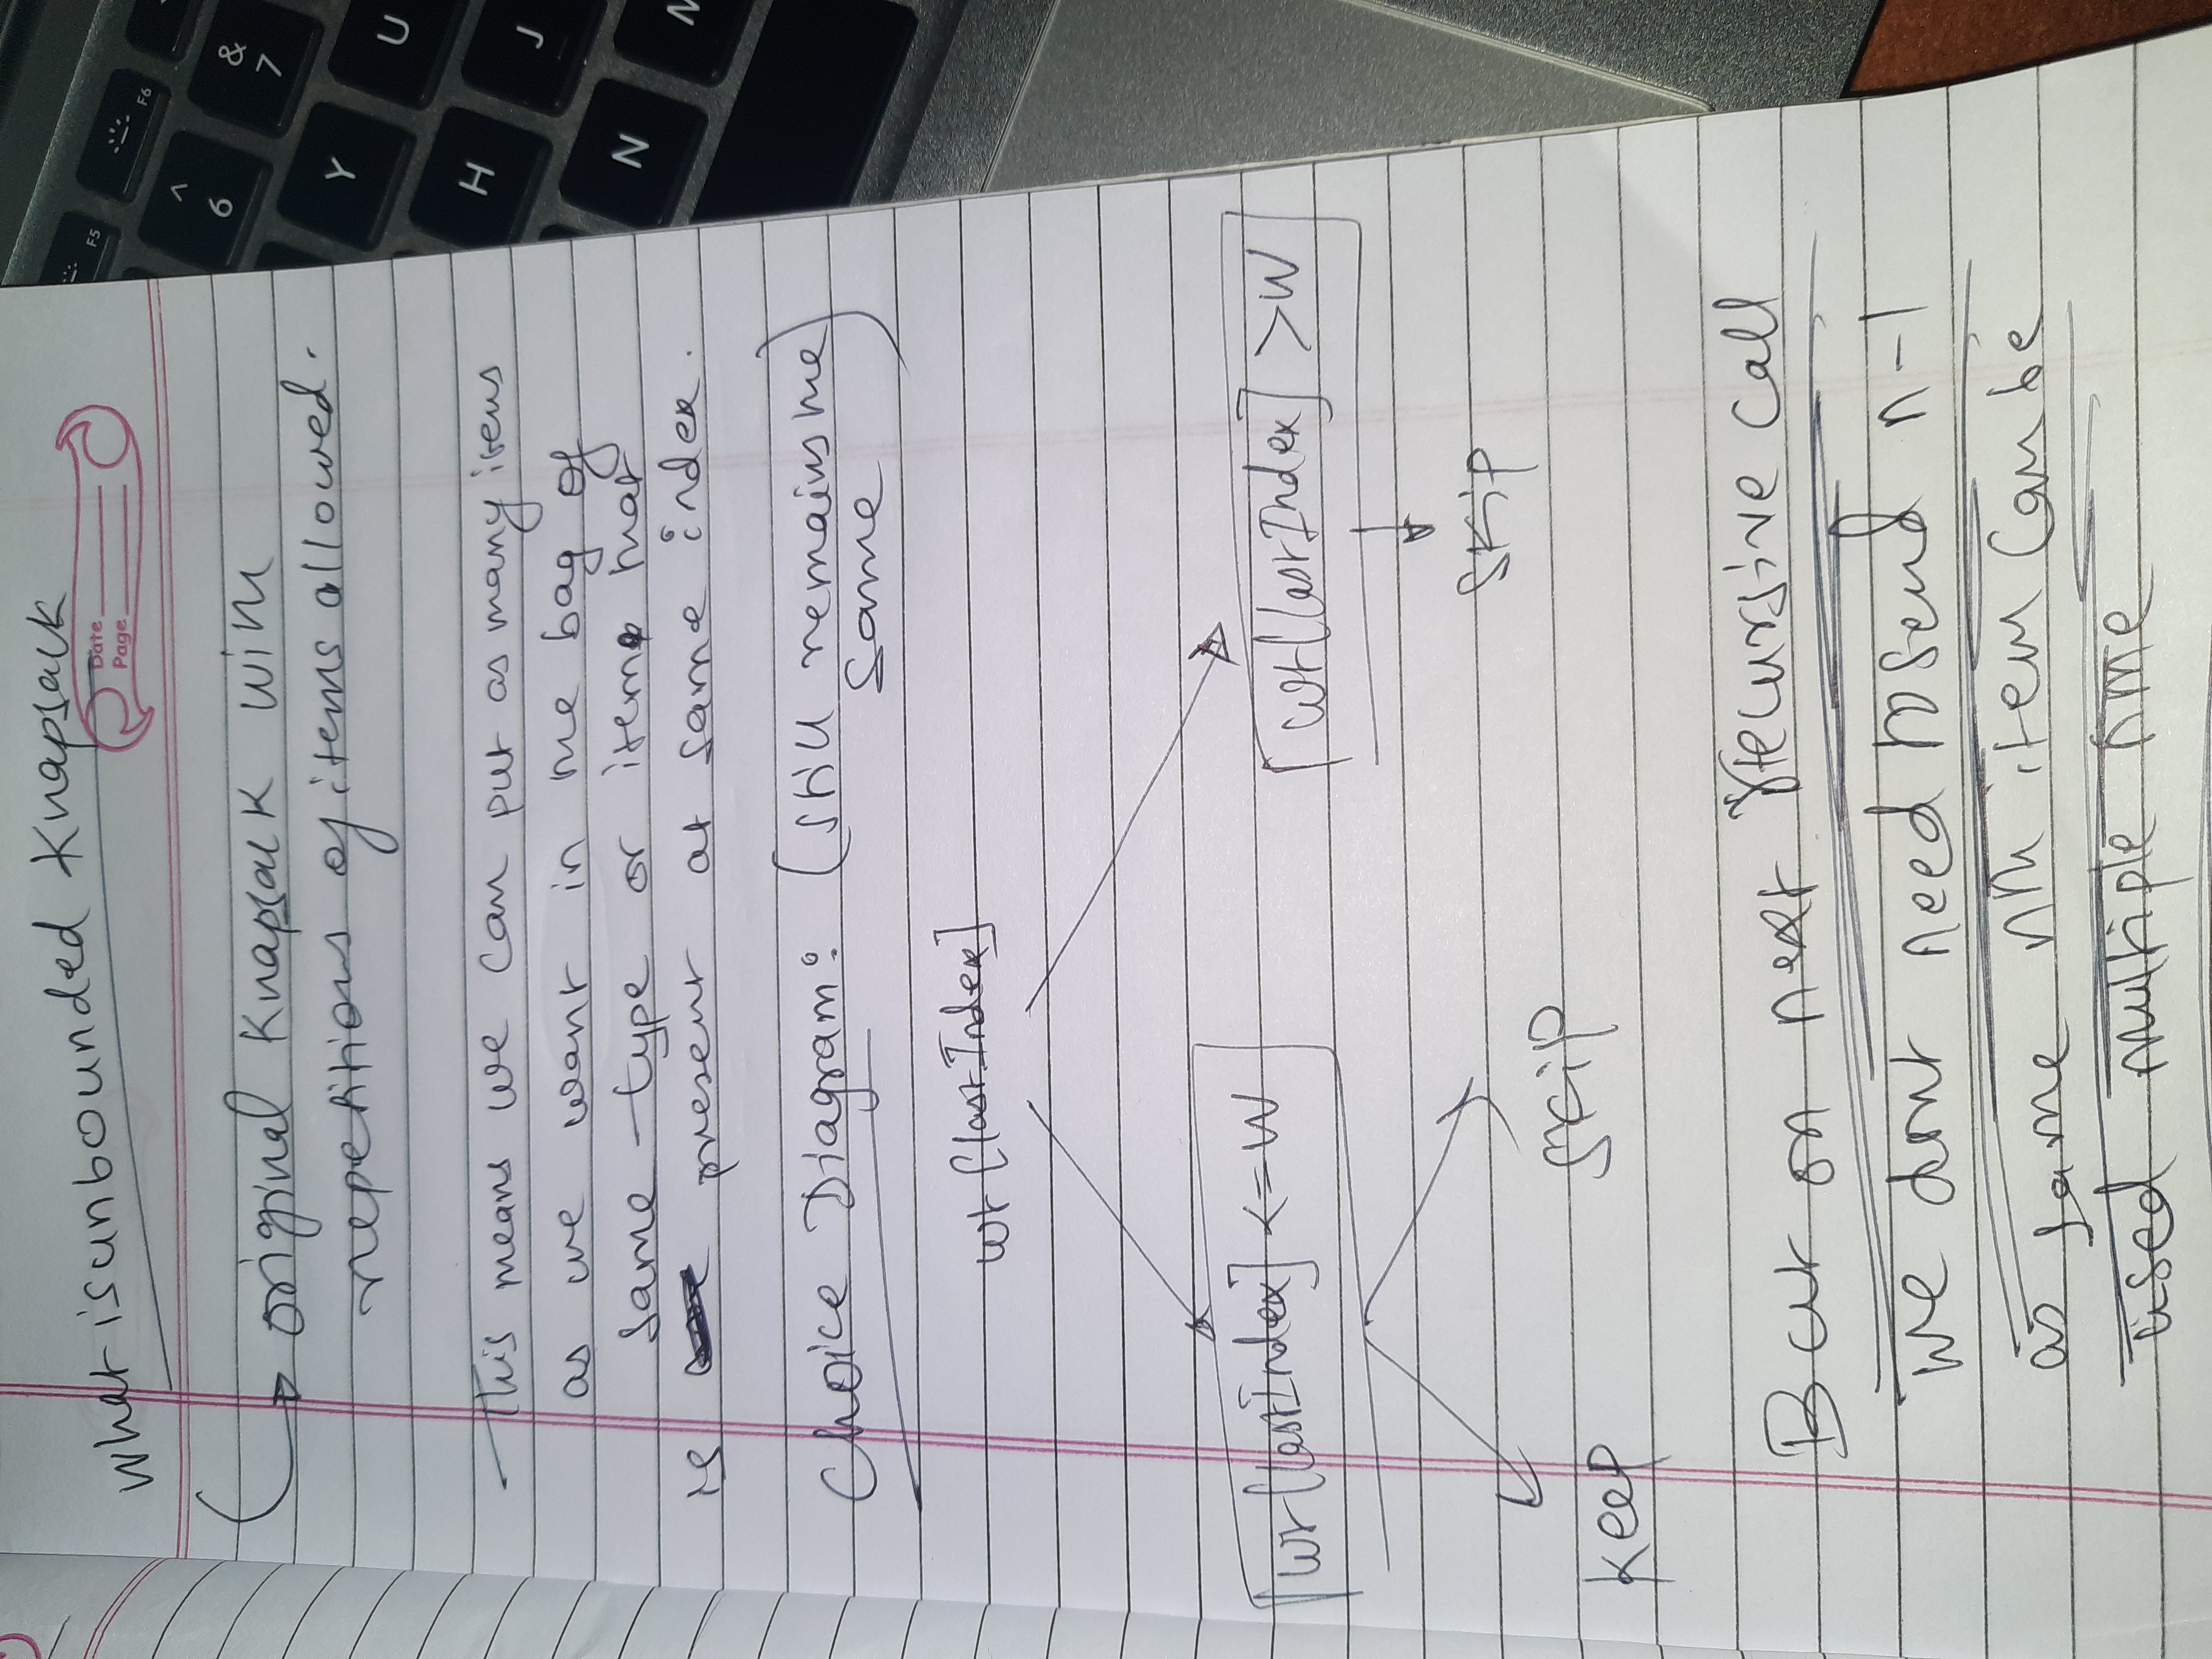 What is unbounded Knapsack
Date
Page
original Knapsack with
repetitions of items allowed.
This means we can put as many items
as we want in the bag of
same type or item that
is present at same index.
Choice Diagram: (Still remains the
same)
wt[lastIndex]
wt[lastIndex] <= W
wt[lastIndex] > W
Skip
Skip
Keep
But on next recursive call
we dont need to send n-1
as same nth item can be
used multiple time
F5
F6
^
6
&
7
Y
U
H
J
N
M